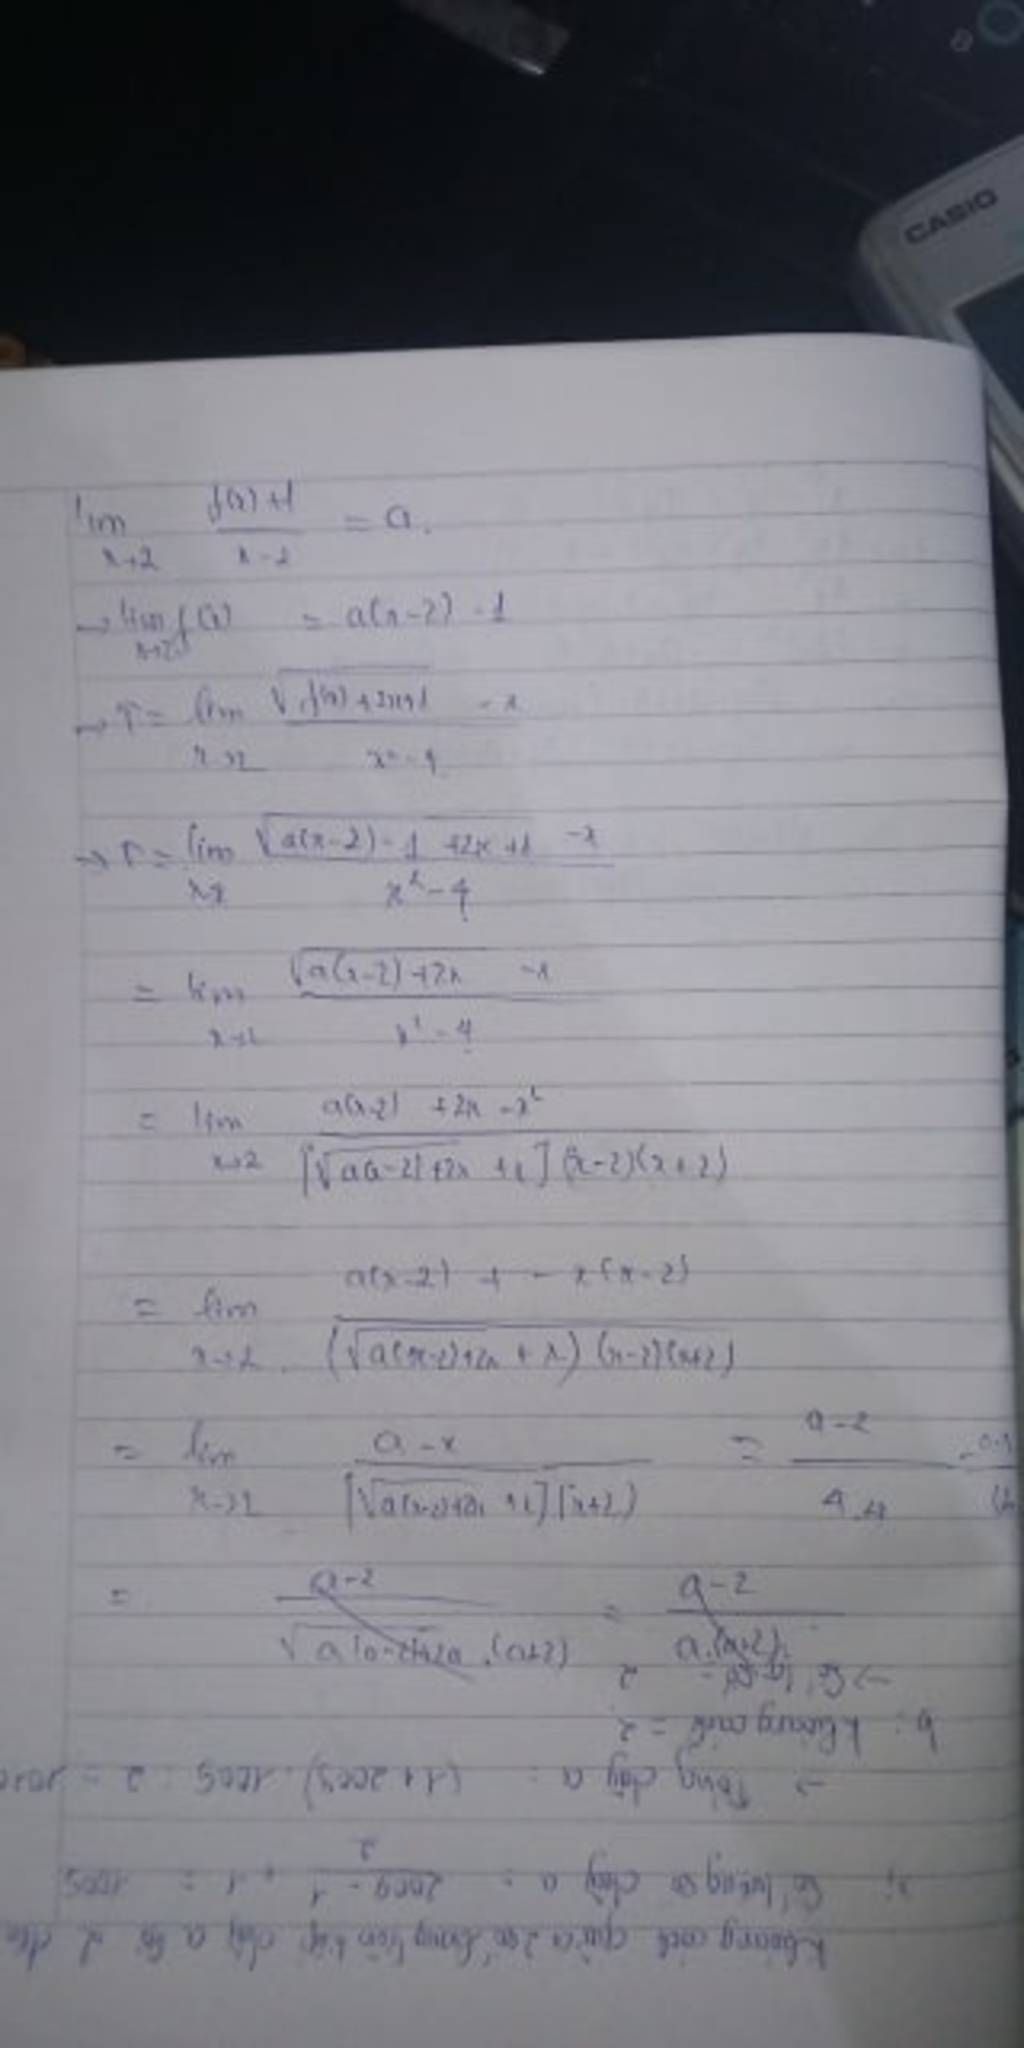 CASIO
lim x→2 f(x)+1 / x-2 = a.
→ lim x→2 f(x) = a(x-2) - 1
→ T = lim x→2 √f(x)+2x+1 - x / x² - 4
→ T = lim x→2 √a(x-2) - 1 + 2x + 1 - x / x² - 4
= lim x→2 √a(x-2)+2x - x / x² - 4
= lim x→2 a(x-2) + 2x - x² / [√a(x-2)+2x + x] (x-2)(x+2)
= lim x→2 a(x-2) + - x(x-2) / (√a(x-2)+2x + x) (x-2)(x+2)
= lim x→2 a - x / [√a(x-2)+2x + x] (x+2) = a-2 / 4.4
= a-2 / √a(a-2)+2a . (a+2) = a-2 / a.(a+2)
b: khoảng cách = 2
→ Tổng dãy a = (1+2009) . 1005 : 2 =
Số lượng số dãy a = 2009 - 1 / 2 + 1 = 1005
Khoảng cách giữa 2 số liên tiếp dãy a là 2